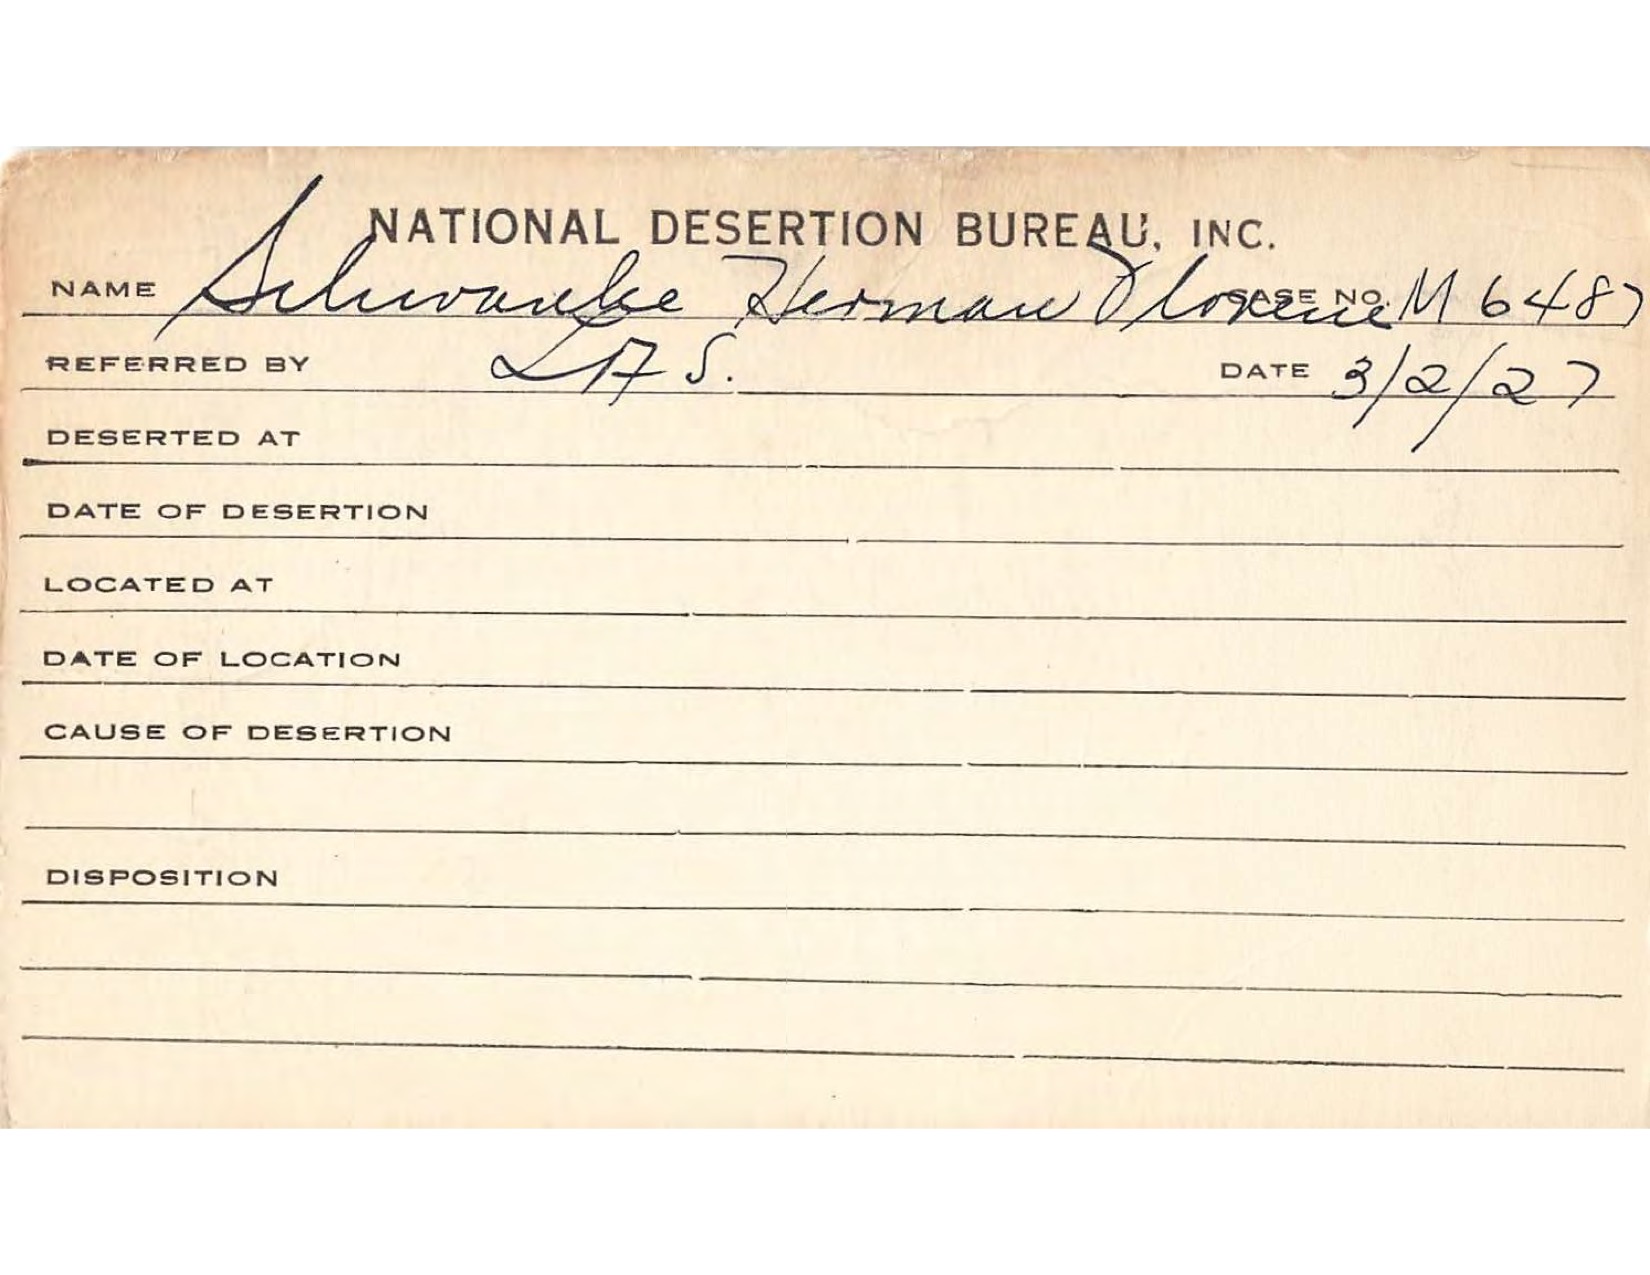 NATIONAL DESERTION BUREAU, INC.
NAME Schwanke Herman Florence CASE NO. M 6487
REFERRED BY LAS. DATE 3/2/27
DESERTED AT
DATE OF DESERTION
LOCATED AT
DATE OF LOCATION
CAUSE OF DESERTION
DISPOSITION